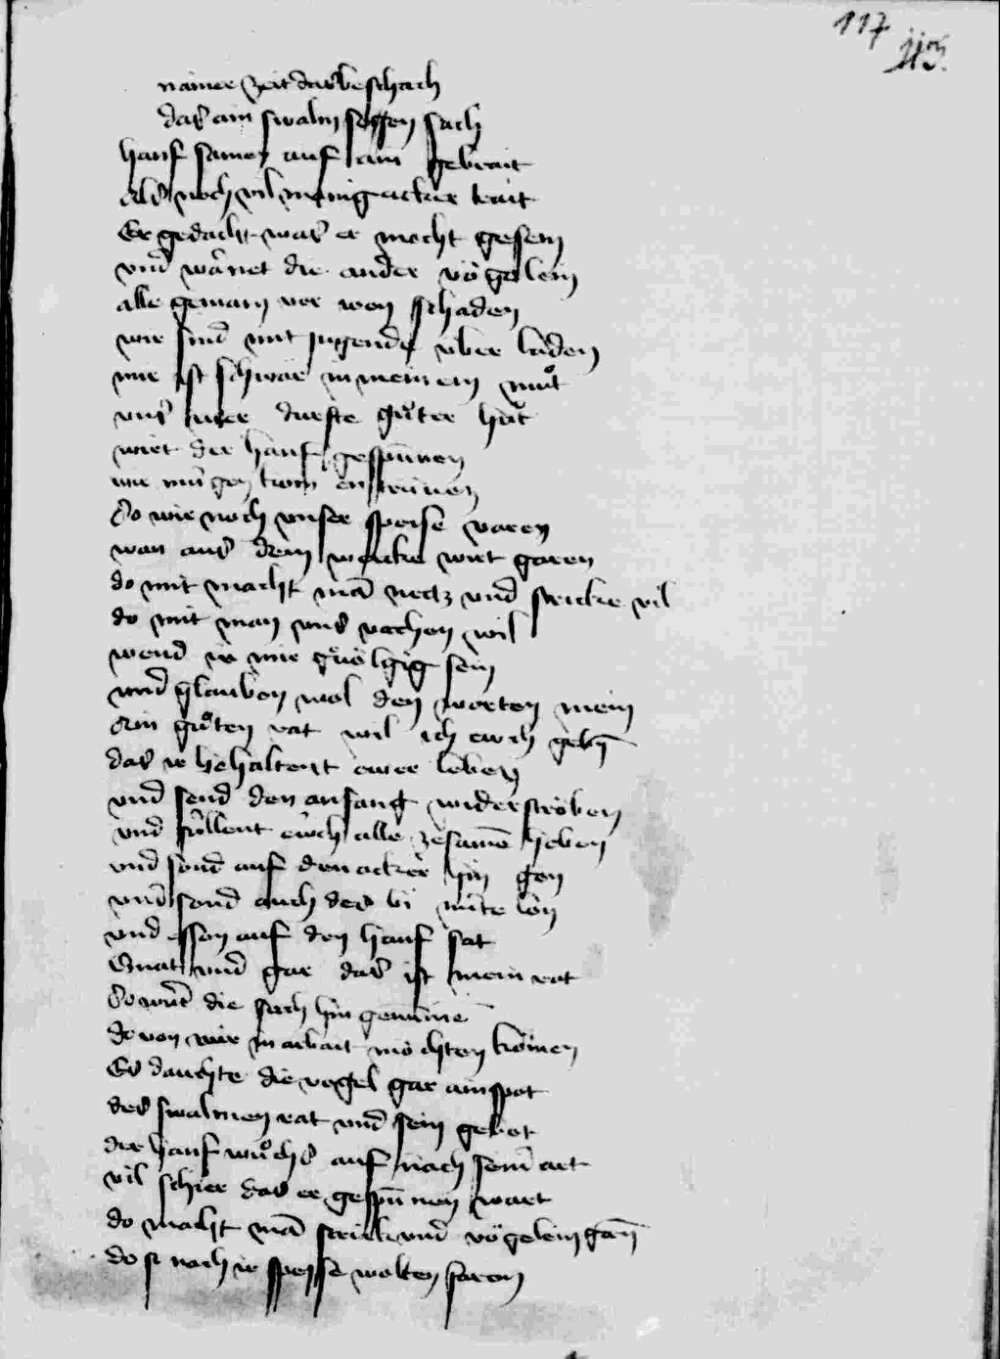 117
113.
nainer zeit das beschach
das ain swalm segen sach
hanf samen auf ain gebrait
als noch vil menig acker trait
Er gedacht was er mocht gesein
vnd warnet die ander vögelein
alle gemain vor won schaden
wir sind mit jugende über laden
mir ist schwär in meinem muͦt
vns wer durfte guͦter huͦt
wirt der hanf gespunnen
wir mügen kom entrinnen
So wir noch vnser speise varen
wan aus dem wercke wirt garen
do mit macht mā netz vnd stricke vil
do mit man vns vachen wil
wend ir mir gevölgig sein
vnd glauben wol den worten mein
Ain guͦten rat wil ich ewch gebn̄
das ir behaltent ewer leben
vnd send den anfang widerstreben
vnd süllent eüch alle zesamē heben
vnd sond auf den acker hin gen
vnd sond auch des bi nüte lon
vnd essen auf den hanf sat
Gnat vnd gar das ist mein rat
So wirt die sach hin genumē
do von wir in arbait möchten komen
Es dauchte die vogel gar ain spot
des swalmen rat vnd sein gebot
der hanf wuͦchs auf nach seinr art
vil schier das er gespunnen wart
do macht mā strick vnd vögelein garn
do si nach ir speise wolten faren